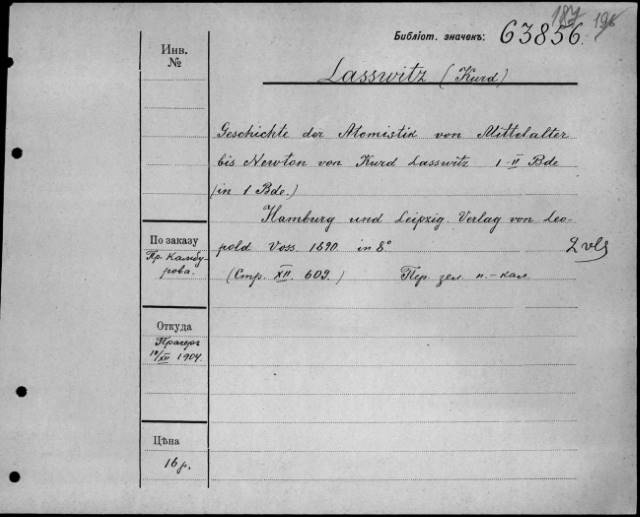 187 196
Библіот. значекъ: 63856.
Инв.
№
Lasswitz (Kurd)
Geschichte der Atomistik von Mittelalter
bis Newton von Kurd Lasswitz I-II Bde
(in 1 Bde.)
Hamburg und Leipzig Verlag von Leo-
pold Voss. 1890 in 8°
2 vls
(Стр. XII. 609.) Пер. зел. п.-кал.
По заказу
Пр. Камбу-
рова.
Откуда
Прагеръ
10/XII 1904.
Цѣна
16 р.